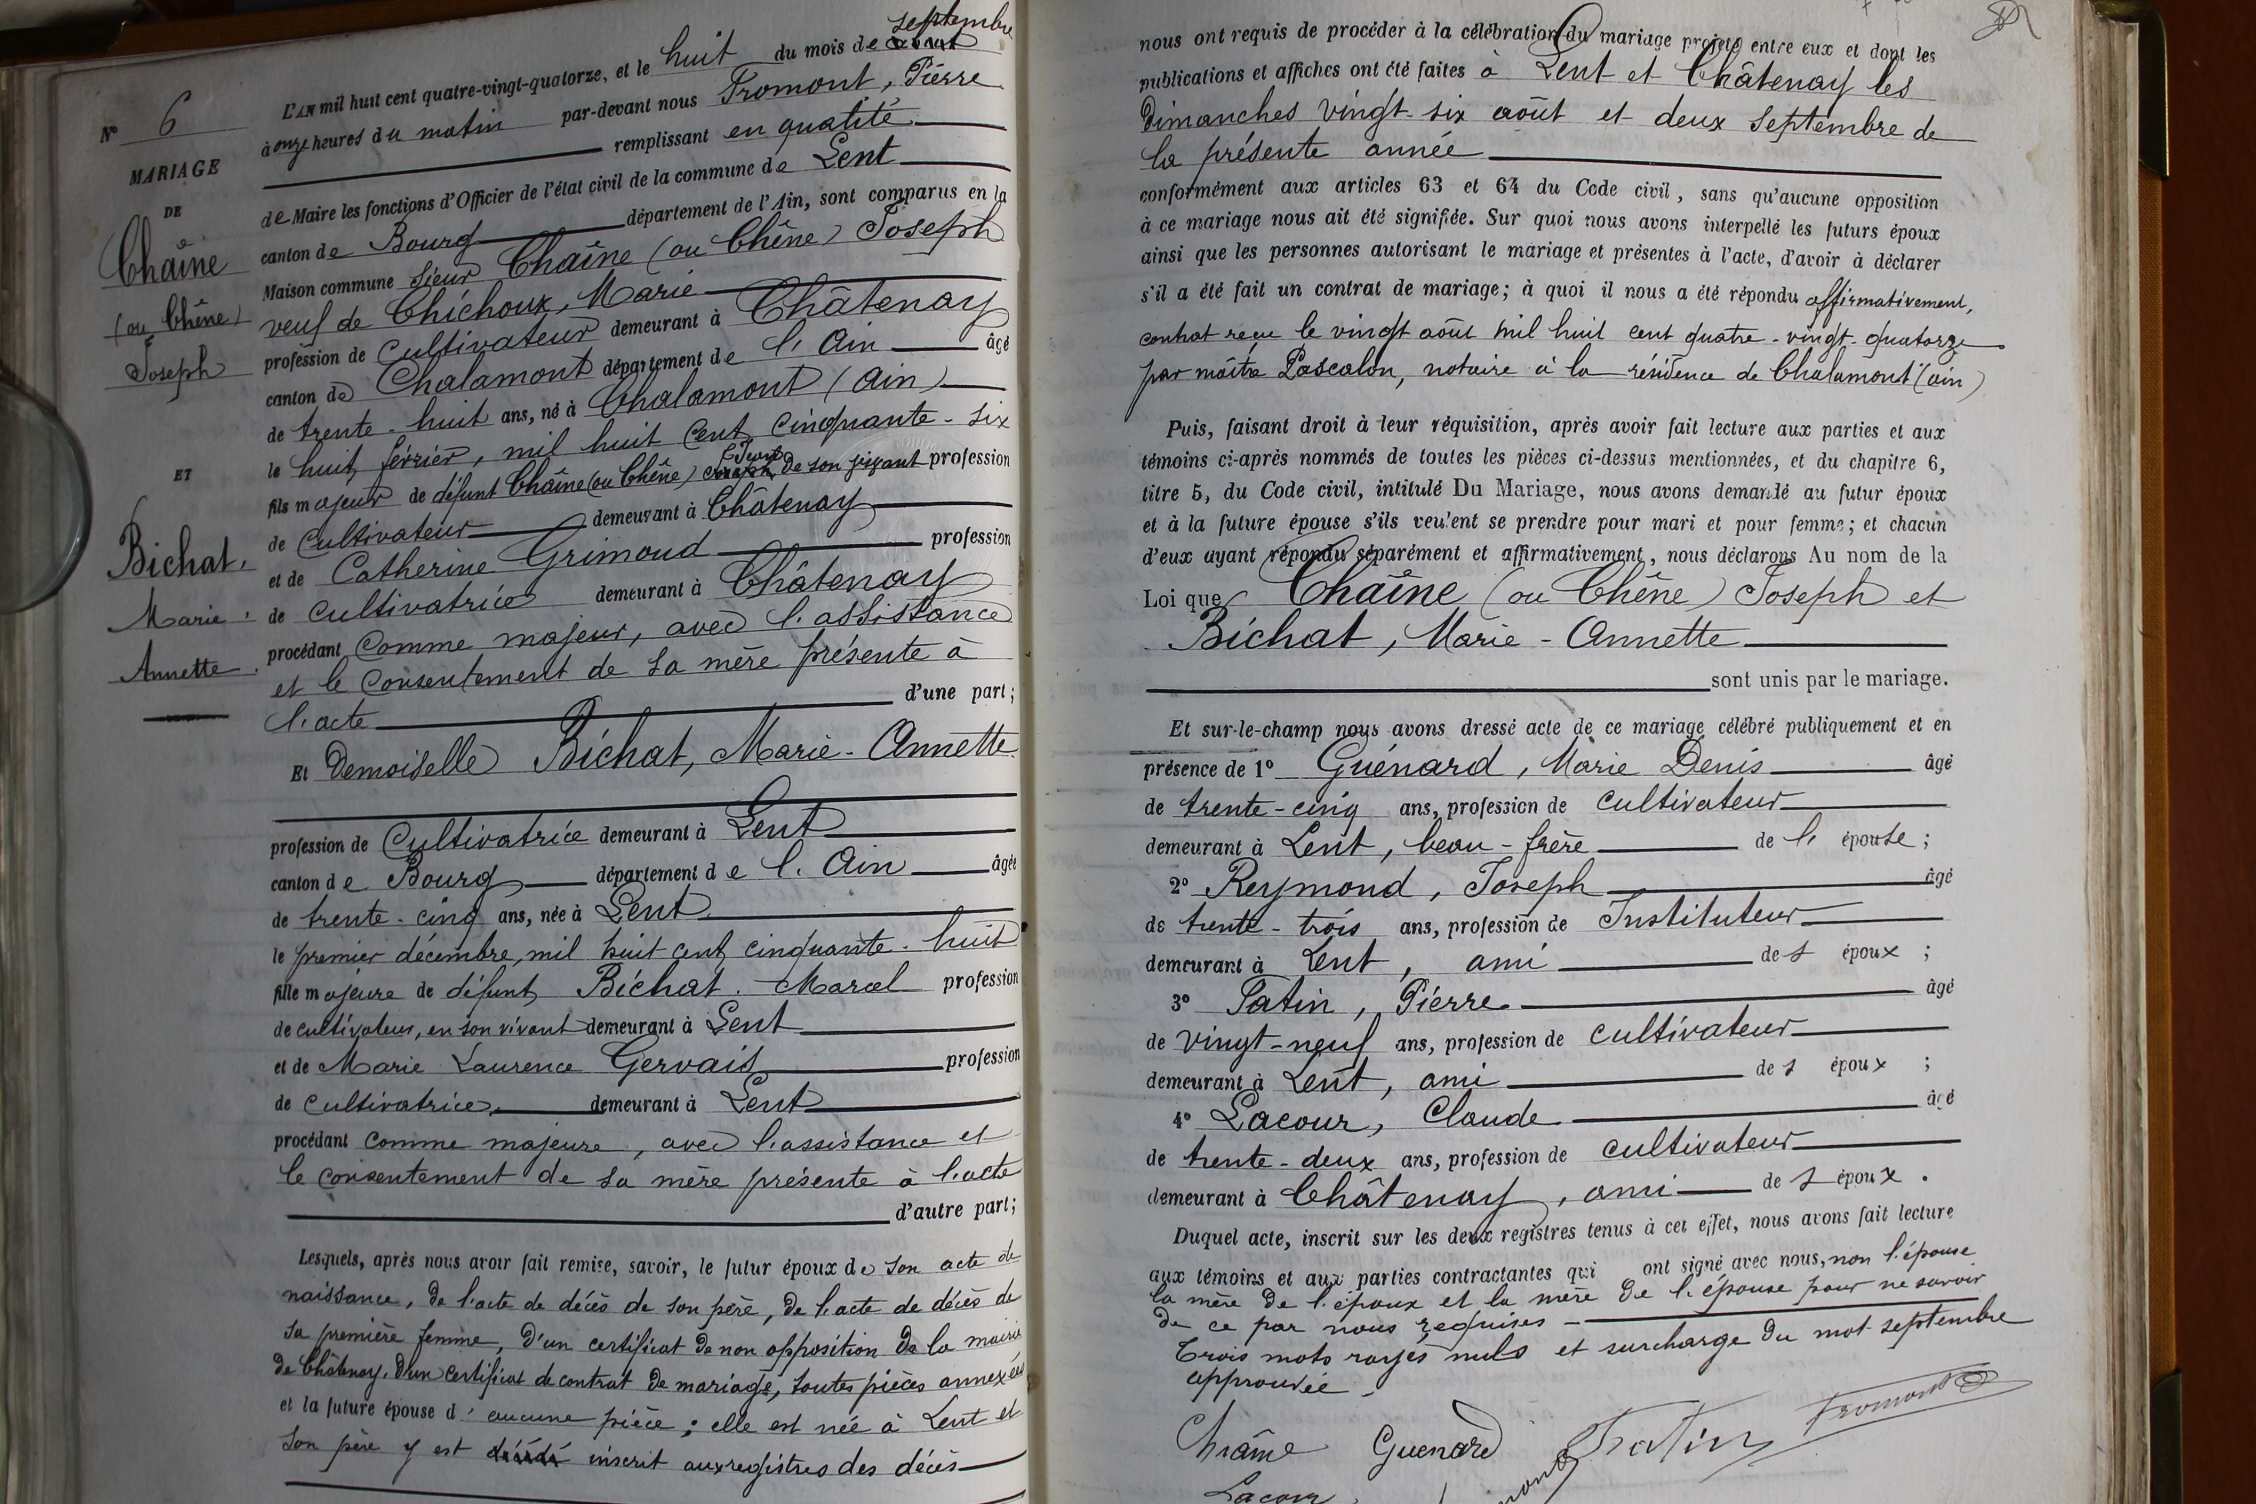 N° 6
MARIAGE
DE
Chaîne
(ou Chêne)
Joseph
ET
Bichat,
Marie
Annette
L'AN mil huit cent quatre-vingt-quatorze, et le huit du mois de août septembre
à onze heures du matin par-devant nous Fromont, Pierre
remplissant en qualité
de Maire les fonctions d'Officier de l'état civil de la commune de Lent
canton de Bourg département de l'Ain, sont comparus en la
Maison commune sieur Chaîne (ou Chêne) Joseph
veuf de Chichoux, Marie
profession de cultivateur demeurant à Châtenay
canton de Chalamont département de l'Ain âgé
de trente-huit ans, né à Chalamont (Ain)
le huit février, mil huit cent cinquante-six
fils majeur de défunt Chaîne (ou Chêne) de son vivant profession
de cultivateur demeurant à Châtenay
et de Catherine Grimoud profession
de cultivatrice demeurant à Châtenay
procédant comme majeur, avec l'assistance
et le consentement de sa mère présente à
l'acte d'une part;
Et Demoiselle Bichat, Marie-Annette
profession de cultivatrice demeurant à Lent
canton de Bourg département de l'Ain âgée
de trente-cinq ans, née à Lent
le premier décembre, mil huit cent cinquante-huit
fille majeure de défunt Bichat Marcel profession
de cultivateur, en son vivant demeurant à Lent
et de Marie Laurence Gervais profession
de cultivatrice, demeurant à Lent
procédant comme majeure, avec l'assistance et
le consentement de sa mère présente à l'acte
d'autre part;
Lesquels, après nous avoir fait remise, savoir, le futur époux de son acte de
naissance, de l'acte de décès de son père, de l'acte de décès de
sa première femme, d'un certificat de non opposition de la mairie
de Châtenay, d'un certificat de contrat de mariage, toutes pièces annexées
et la future épouse d'aucune pièce; elle est née à Lent et
son père y est décédé inscrit aux registres des décès
nous ont requis de procéder à la célébration du mariage projeté entre eux et dont les
publications et affiches ont été faites à Lent et Châtenay les
dimanches vingt-six août et deux septembre de
la présente année
conformément aux articles 63 et 64 du Code civil, sans qu'aucune opposition
à ce mariage nous ait été signifiée. Sur quoi nous avons interpellé les futurs époux
ainsi que les personnes autorisant le mariage et présentes à l'acte, d'avoir à déclarer
s'il a été fait un contrat de mariage; à quoi il nous a été répondu affirmativement,
contrat reçu le vingt août mil huit cent quatre-vingt-quatorze
par maître Pascalon, notaire à la résidence de Chalamont (Ain)
Puis, faisant droit à leur réquisition, après avoir fait lecture aux parties et aux
témoins ci-après nommés de toutes les pièces ci-dessus mentionnées, et du chapitre 6,
titre 5, du Code civil, intitulé Du Mariage, nous avons demandé au futur époux
et à la future épouse s'ils veulent se prendre pour mari et pour femme; et chacun
d'eux ayant répondu séparément et affirmativement, nous déclarons Au nom de la
Loi que Chaîne (ou Chêne) Joseph et
Bichat, Marie-Annette
sont unis par le mariage.
Et sur-le-champ nous avons dressé acte de ce mariage célébré publiquement et en
présence de 1° Guénard, Marie Denis âgé
de trente-cinq ans, profession de cultivateur
demeurant à Lent, beau-frère de l'épouse;
2° Reymond, Joseph âgé
de trente-trois ans, profession de Instituteur
demeurant à Lent, ami des époux;
3° Patin, Pierre âgé
de vingt-neuf ans, profession de cultivateur
demeurant à Lent, ami des époux;
4° Lacour, Claude âgé
de trente-deux ans, profession de cultivateur
demeurant à Châtenay, ami des époux.
Duquel acte, inscrit sur les deux registres tenus à cet effet, nous avons fait lecture
aux témoins et aux parties contractantes qui ont signé avec nous, non l'épouse
la mère de l'époux et la mère de l'épouse pour ne savoir
de ce par nous requises
Trois mots rayés nuls et surcharge du mot septembre
approuvée
Chaîne Guenard Patin Fromont
Lacour